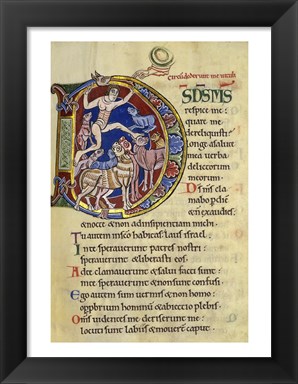 Circundederunt me vituli
DS DS MS
respice me:
quare me
dereliquisti:
longe a salute
mea verba
delictorum
meorum.
Ds ms cla
mabo p die
& ñ exaudies:
& nocte & non ad insipientiam michi.
Tu autem in sco habitas laus israel.
In te speraverunt patres nostri:
speraverunt & liberasti eos.
Ad te clamaverunt & salvi facti sunt:
in te speraverunt & non sunt confusi.
Ego autem sum vermis & non homo:
opprobrium hominum & abiectio plebis.
Oms videntes me deriserunt me:
locuti sunt labiis & moverunt caput.